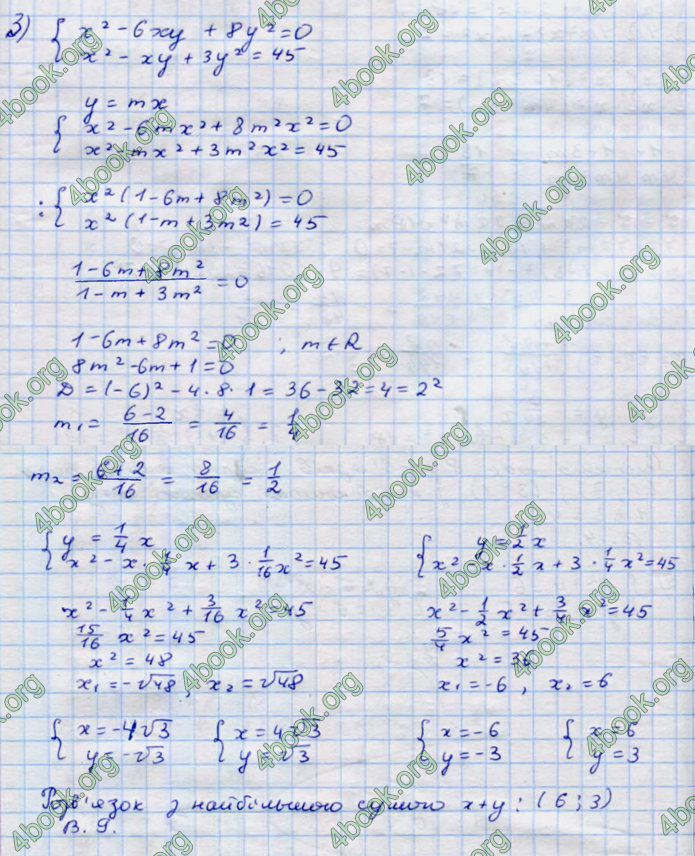 3) { x² - 6xy + 8y² = 0
x² - xy + 3y² = 45
y = mx
{ x² - 6mx² + 8m²x² = 0
x² - mx² + 3m²x² = 45
: { x²(1 - 6m + 8m²) = 0
x²(1 - m + 3m²) = 45
(1 - 6m + 8m²)/(1 - m + 3m²) = 0
1 - 6m + 8m² = 0 ; m ∈ R
8m² - 6m + 1 = 0
D = (-6)² - 4·8·1 = 36 - 32 = 4 = 2²
m₁ = (6-2)/16 = 4/16 = 1/4
m₂ = (6+2)/16 = 8/16 = 1/2
{ y = 1/4 x
x² - x · 1/4 x + 3 · 1/16 x² = 45
x² - 1/4 x² + 3/16 x² = 45
15/16 x² = 45
x² = 48
x₁ = -√48, x₂ = √48
{ y = 1/2 x
x² - x · 1/2 x + 3 · 1/4 x² = 45
x² - 1/2 x² + 3/4 x² = 45
5/4 x² = 45
x² = 36
x₁ = -6, x₂ = 6
{ x = -4√3
y = -√3
{ x = 4√3
y = √3
{ x = -6
y = -3
{ x = 6
y = 3
Розв'язок з найбільшою сумою x+y : (6; 3)
В. Д.
4book.org